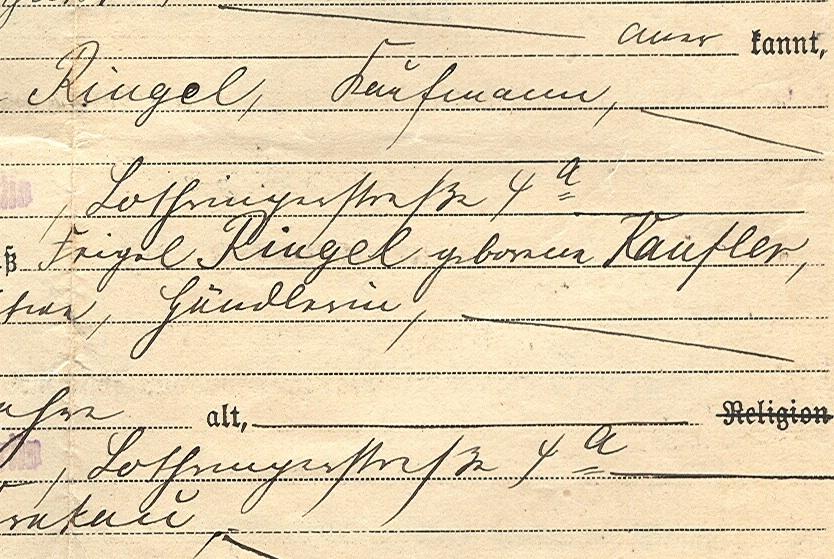 aner kannt,
Ringel, Kaufmann,
lin, Lothringerstraße 4 a
ß Feigel Ringel geborene Kaufler,
Händlerin,
alt, Religion
lin, Lothringerstraße 4 a
Krakau,